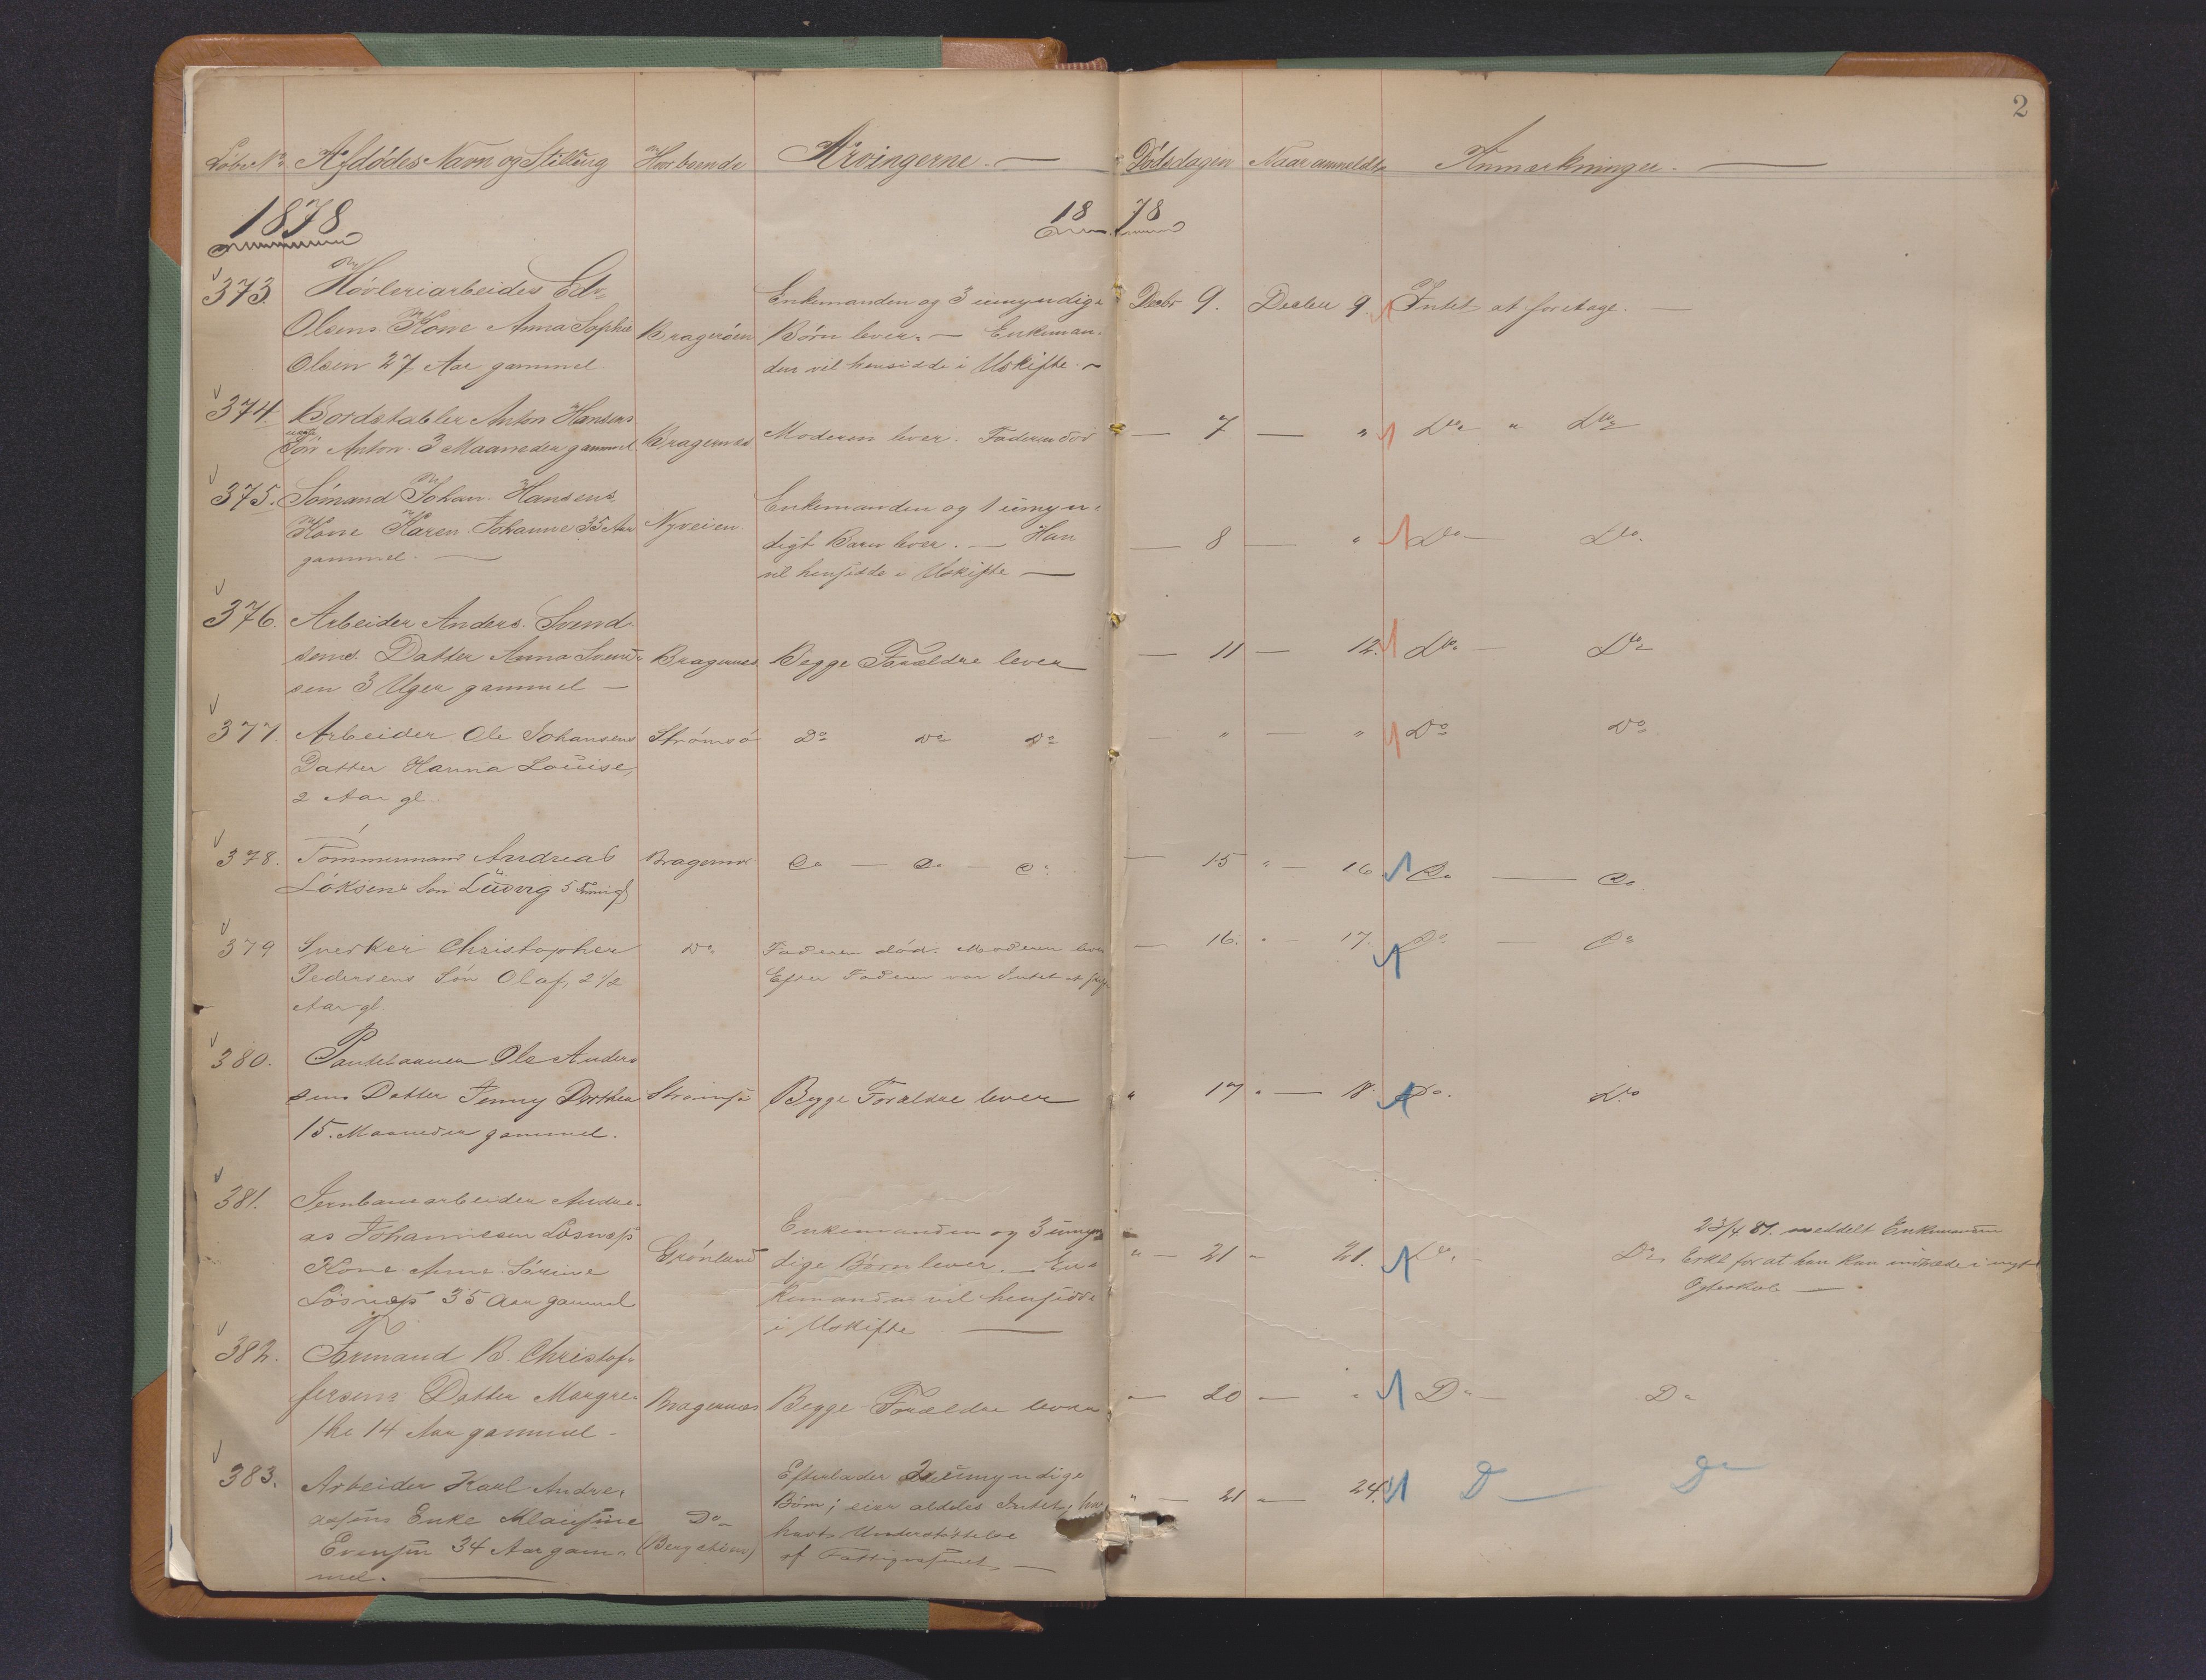 2
Løbe No. Afdødes Navn og Stilling Hvor boende Arvingerne. — Dødsdagen Naar anmeldt Anmærkninger. —
1878. 18 78
373. Høvleriarbeider Edv.
Olsens Kone Anna Sophie
Olsen 27 Aar gammel
Bragerøen
Enkemanden og 3 umyndige
Børn lever. — Enkeman-
den vil hensidde i Uskifte. —
Decbr 9. Decbr 9. Intet at foretage. —
374. Bordstabler Anton Hansens
Søn Anton 3 Maaneder gammel
Bragernes
Moderen lever. Faderen død
— 7 — " Do " Do
375. Sømand Johan Hansens
Kone Karen Johanne 35 Aar
gammel. —
Nyveien
Enkemanden og 1 umyn-
digt Barn lever. — Han
vil hensidde i Uskifte —
— 8 — " Do — Do.
376. Arbeider Anders Svend-
sens Datter Anna Svend-
sen 3 Uger gammel —
Bragernes
Begge Forældre lever
— 11 — 12. Do — Do
377. Arbeider Ole Johansens
Datter Hanna Louise,
2 Aar gl.
Strømsø
Do Do Do
— " — " Do Do
378. Tømmermand Andreas
Løksens Søn Ludvig 5
Bragernes
Do — Do — Do
— 15 " — 16 Do — Do
379 Snerker Christopher
Pedersens Søn Olaf, 2 1/2
Aar gl.
Do
Faderen død. Moderen lever
Efter Faderen var Intet at
— 16. " — 17. Do — Do
380. Ole Ander-
sens Datter Jenny Dorthea
15. Maaneder gammel.
Strømsø
Begge Forældre lever
" 17 " — 18. Do. Do
381. Jernbanearbeider Andre-
as Johannesen Løsnæs
Kone Anne Sørine
Løsnæs 35 Aar gammel
Grønland
Enkemanden og 3 umyn-
dige Børn lever. — En-
kemanden vil hensidde
i Uskifte —
" — 21 " 21. Do — Do
23/4 81. meddelt Enkemanden
Erkl for at han kan indtræde i nyt
Egteskab —
382. Formand B. Christof-
fersens Datter Margre-
the 14 Aar gammel —
Bragernes
Begge Forældre lever
— 20 — " Do — Do
383. Arbeider Karl Andre-
asens Enke Klausine
Evensen 34 Aar gam-
mel. —
Do
(Bergstien)
Efterlader 2 umyndige
Børn; eier aldeles Intet; har
havt Understøttelse
af Fattigvæsenet —
" — 21 " — 24. D — Do